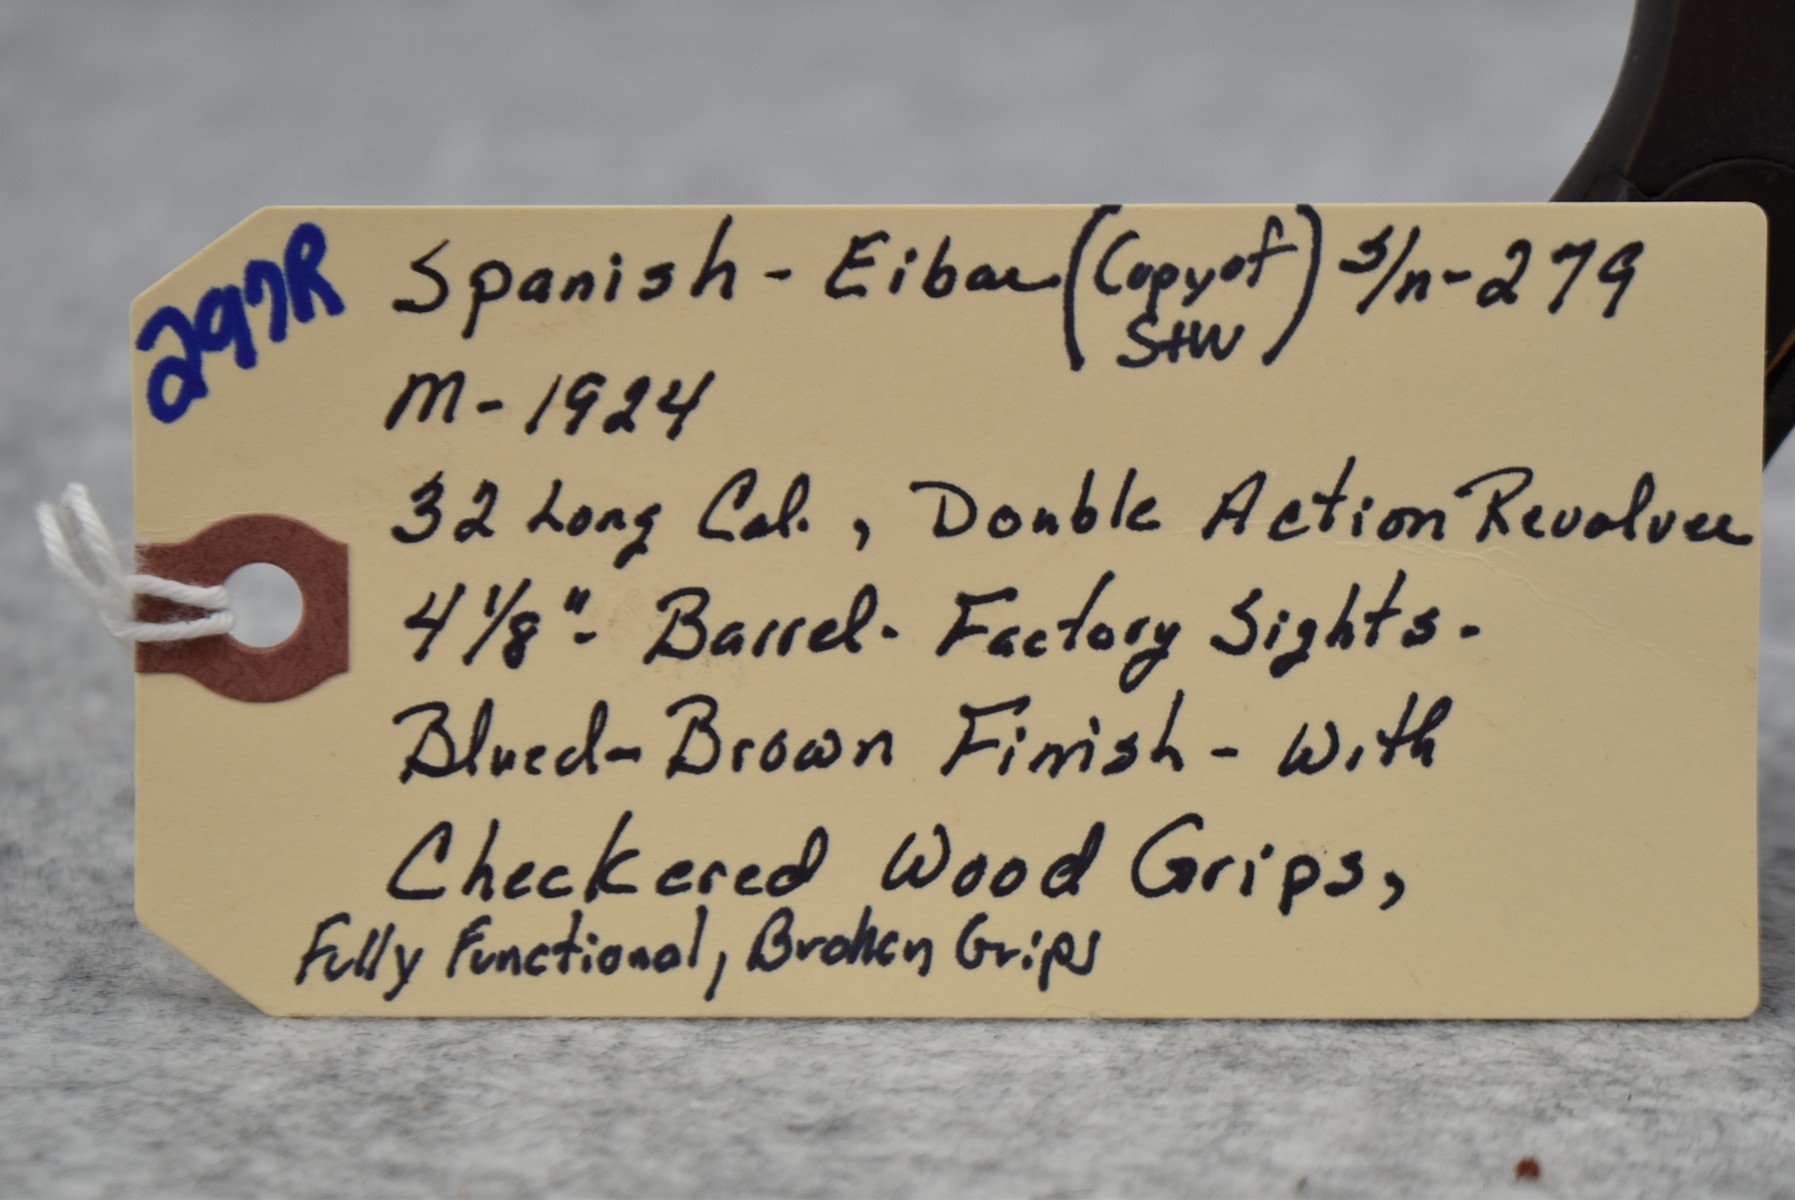 297R
Spanish - Eibar (Copy of S+W) s/n - 279
M - 1924
32 Long Cal., Double Action Revolver
4 1/8" - Barrel - Factory Sights -
Blued - Brown Finish - With
Checkered Wood Grips,
Fully Functional, Broken Grips